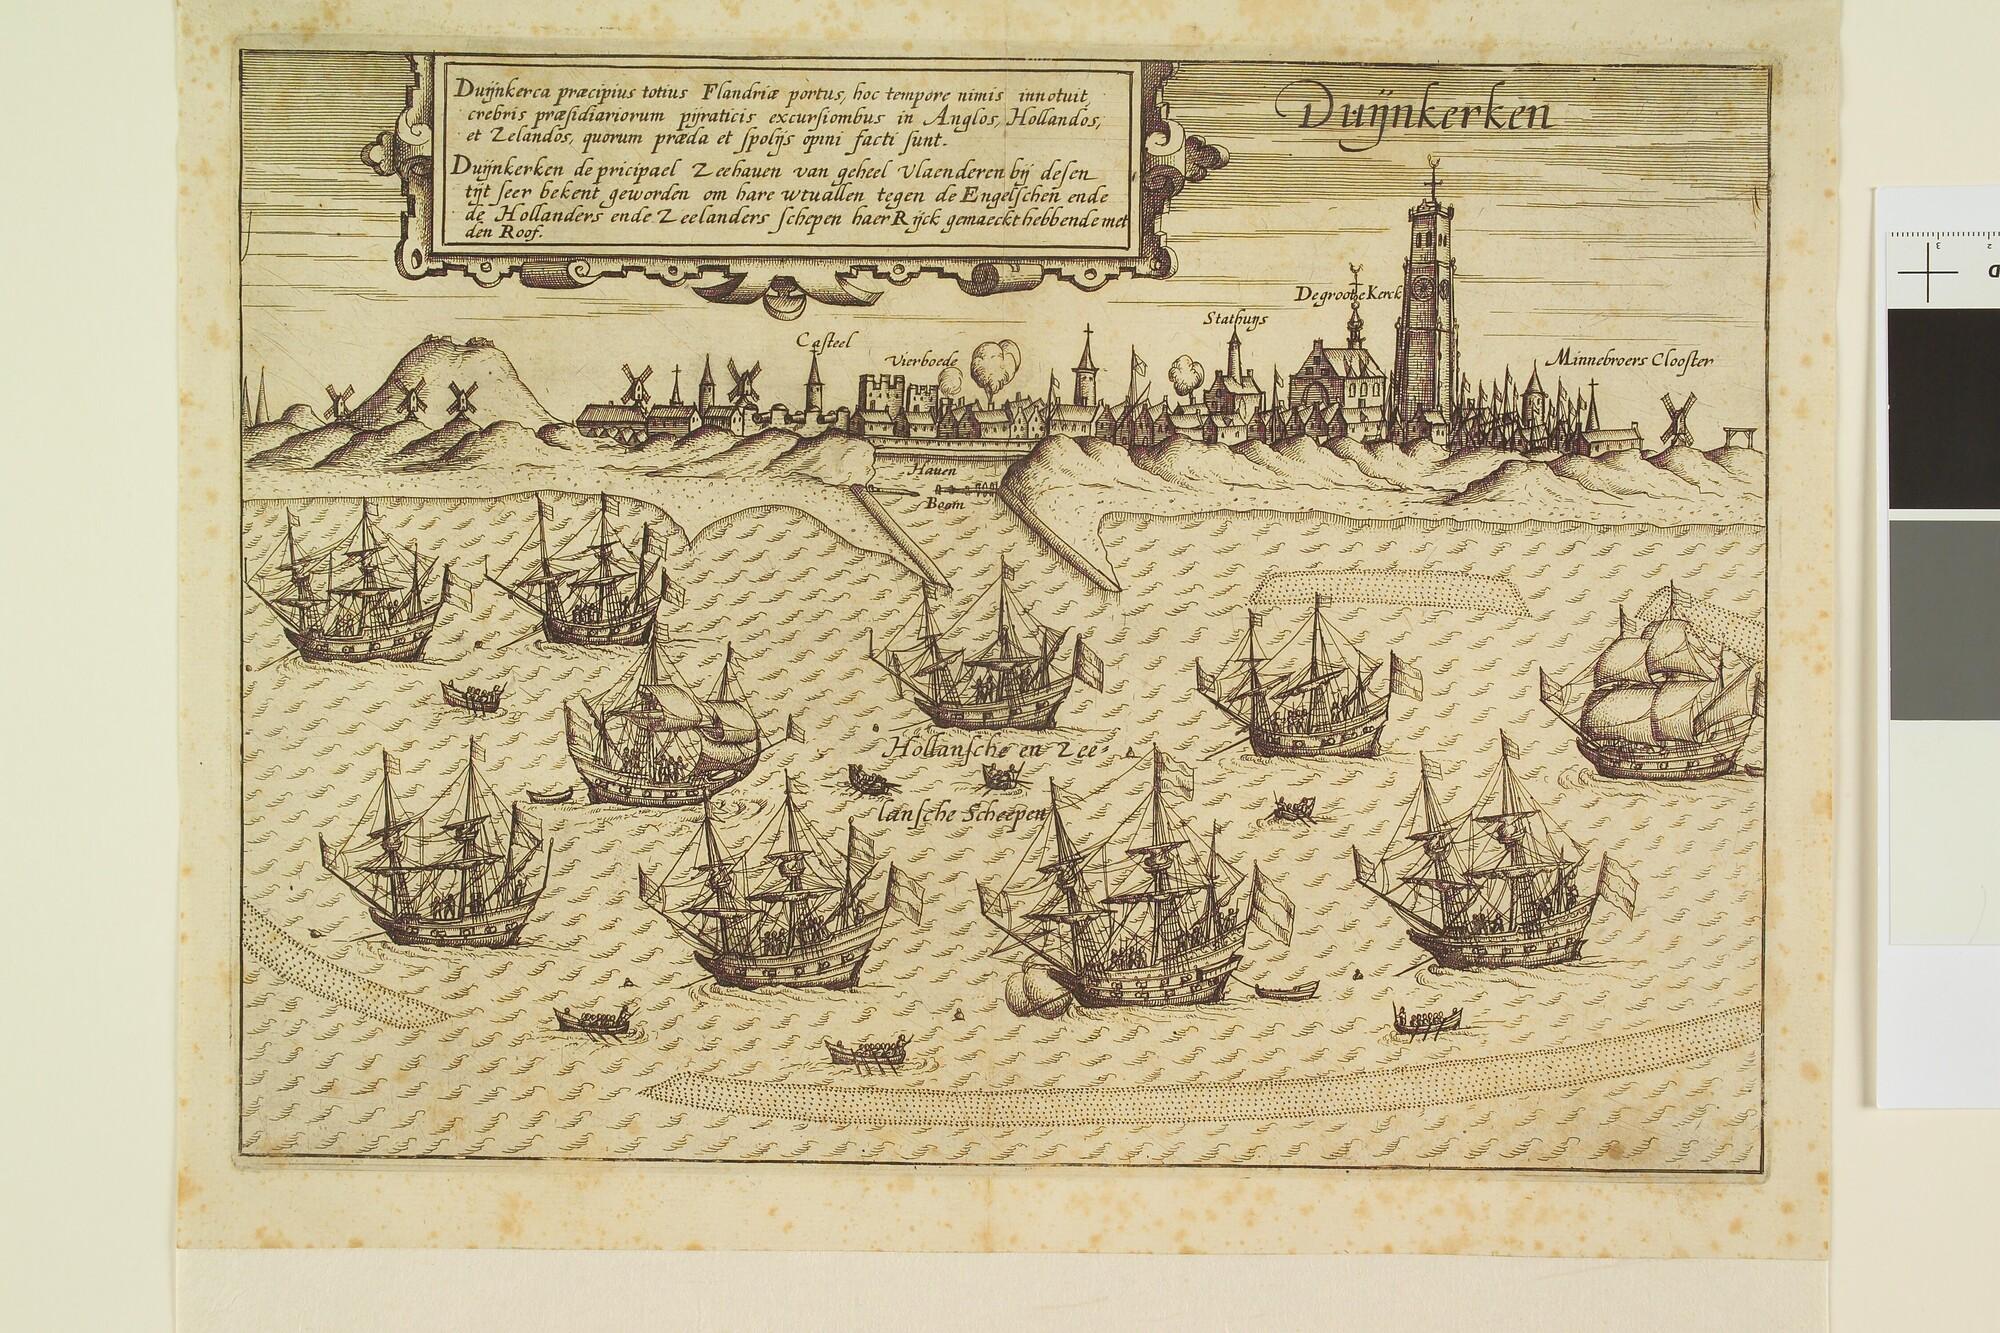 Duijnkerca præcipius totius Flandriæ portus, hoc tempore nimis innotuit,
crebris præſidiariorum pijraticis excurſiombus in Anglos, Hollandos,
et Zelandos, quorum præda et ſpolijs opini facti ſunt.
Duijnkerken de pricipael Zeehauen van geheel Vlaenderen bij deſen
tijt ſeer bekent geworden om hare wtuallen tegen de Engelſchen ende
de Hollanders ende Zeelanders ſchepen haer Rijck gemaeckt hebbende met
den Roof.
Duijnkerken
De groote Kerck
Stathuijs
Casteel
Vierboede
Minnebroers Clooſter
Hauen
Boom
Hollanſche en Zee-
lanſche Scheepen